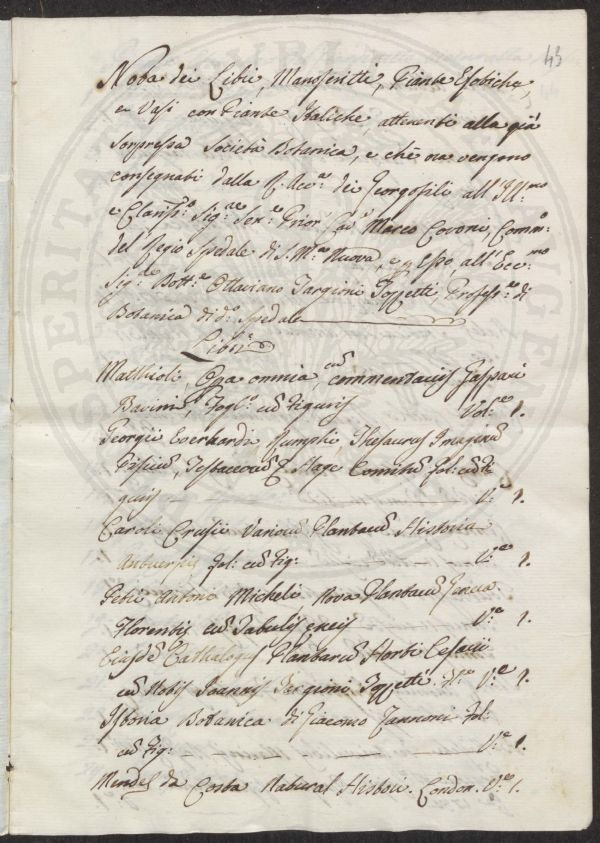 43
Nota dei Libri, Manoscritti, Piante Esotiche,
e Vasi con Piante Italiche, attenenti alla già
soppressa Società Botanica, e che ora vengono
consegnati dalla R. Acc.a dei Georgofili all'Ill.mo
e Clariss.o Sig.re Sen.re Prior Cav. Marco Covoni, Comm.o
del Regio Spedale di S. M.a Nuova, e p. Esso, all'Ecc.mo
Sig.re Dott.re Ottaviano Targioni Tozzetti, Profess.re di
Botanica di d.o Spedale
Libri
Matthioli, Opa omnia, cū commentariis Gaspari
Bavini, Fogl.o cū Figuris Vol.e 1.
Georgii Everhardi Rumphi Thesaurus Imaginū
Piscium, Testaceorū Hage Comitū fol: cū Fi
guris V.e 1.
Caroli Crusii Variorū Plantarū Historia
Antuerpiæ fol: cū Fig: V.e 1.
Petri Antonii Micheli, Nova Plantarū Genera
Florentiæ cū Tabulis V.e 1.
Eiusdē Cathalogus Plantarū Horti Cesarii
cū Notis Joannis Targioni Tozzetti V.e 1.
Istoria Botanica di Giacomo Zannoni fol:
cū Fig: V.e 1.
Mendes da Costa Natural Histori. London. V.e 1.